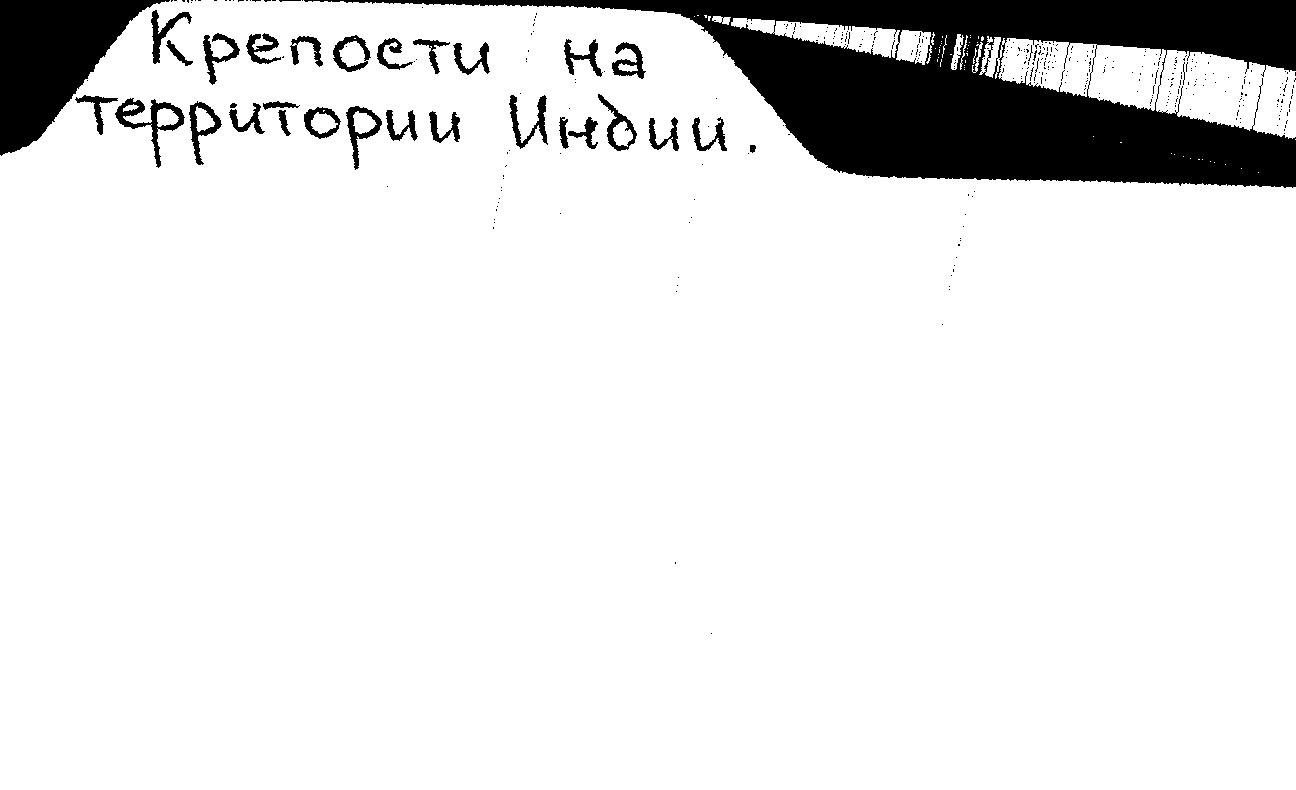 Крепости на
территории Индии.